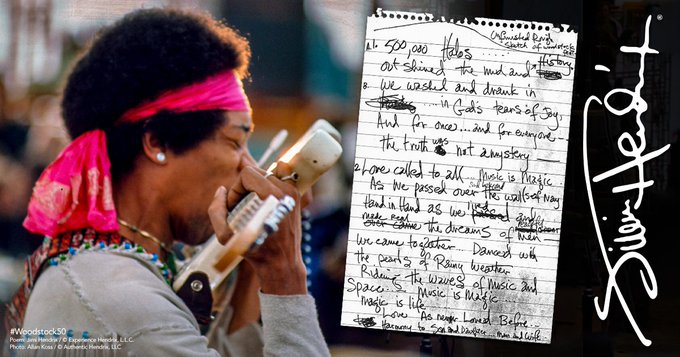 Unfinished Rough
sketch of woodstock
1. 500,000 Halos
out shined the mud and History
2. We washed and drank in
...in God's tears of Joy,
And for once...and for everyone
the truth was not a mystery
2. Love called to all... Music is Magic
As we passed over the walls of Nay
Hand in Hand as we lived and
made real the dreams of men
We came together. Danced with
the pearls of Rainy Weather
Riding the waves of Music and
Space... Music is Magic...
Magic is life...
Love As never Loved Before..
Harmony to Son and Daughter... man and wife
Jimi Hendrix®
#Woodstock50
Poem: Jimi Hendrix / © Experience Hendrix, L.L.C.
Photo: Allan Koss / © Authentic Hendrix, LLC